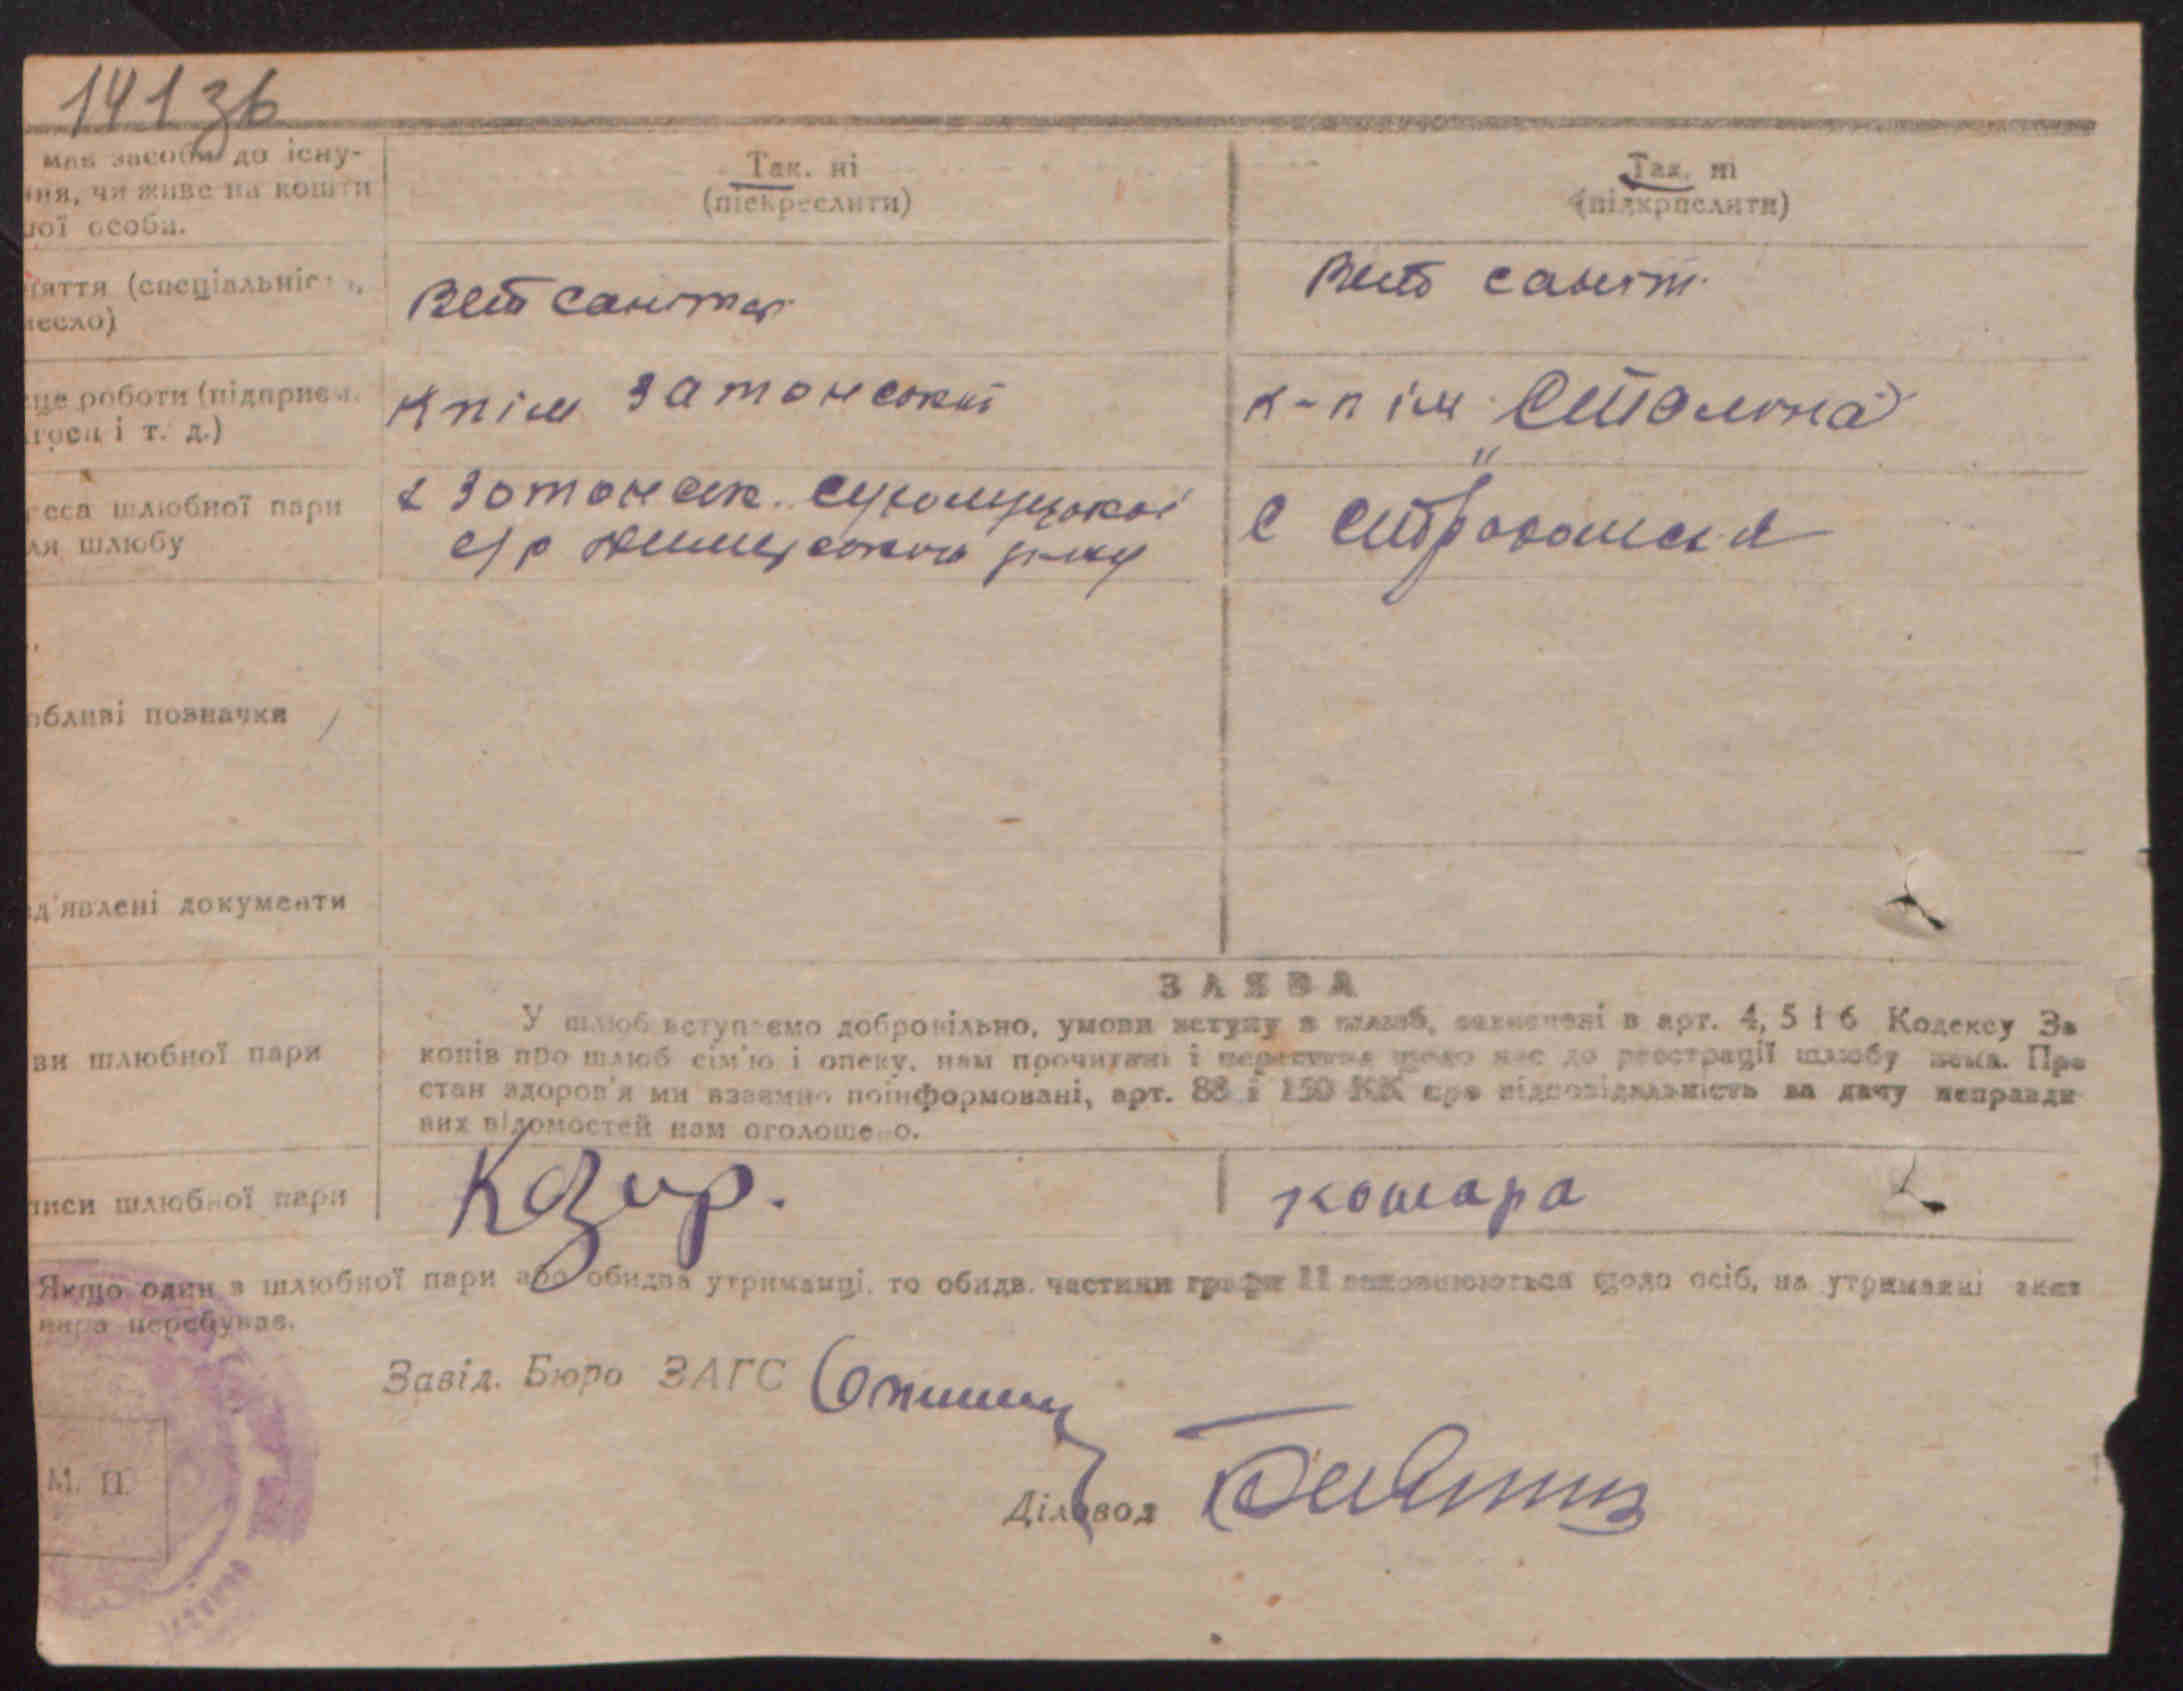 141 зв
має засоби до існу-
ння, чи живе на кошти
ної особи.
Так. ні
(підкреслити)
Так. ні
(підкрислити)
няття (спеціальніс
месло)
Вет санітар
Вет саніт.
це роботи (підприєм.
госп і т. д.)
К п ім Затонський
к-п ім Сталіна
реса шлюбної пари
ля шлюбу
с/р
с
обливі позначки
д'явлені документи
ЗАЯВА
ви шлюбної пари
У шлюб вступаємо добровільно, умови вступу в шлюб, зазначені в арт. 4, 5 і 6 Кодексу За
конів про шлюб сім'ю і опеку, нам прочитані і щодо нас до реєстрації шлюбу нема. Про
стан здоров'я ми взаємно поінформовані, арт. 88 і 150 КК про відповідальність за дачу неправди
вих відомостей нам оголошено.
писи шлюбної пари
кошара
Якщо один з шлюбної пари або обидва утриманці, то обидв. частини графи 11 заповнюються щодо осіб, на утриманні яких
пара перебуває.
Завід. Бюро ЗАГС
М. П.
Діловод